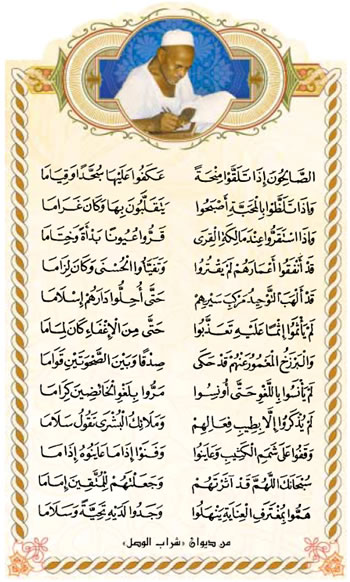 الصَّالِحُونَ إِذَا تَلَقَّوْا مِنْحَةً عَكَفُوا عَلَيْهَا سُجَّدًا وَقِيَامَا
وَإِذَا تَلَظَّوْا بِالْمَحَبَّةِ أَصْبَحُوا يَتَقَلَّبُونَ بِهَا وَكَانَ غَرَامَا
وَإِذَا اسْتَقَرُّوا عِنْدَ مَالِكَةِ الْقِرَى قَرُّوا عُيُونًا بَدْأَةً وَخِتَامَا
قَدْ أَنْفَقُوا أَعْمَارَهُمْ لَمْ يَقْتُرُوا وَتَفَيَّأُوا الْحُسْنَى وَكَانَ لِزَامَا
قَدْ أَلْهَبَ التَّوْحِيدُ مَرْكِبَ سَيْرِهِمْ حَتَّى أُحِلُّوا دَارَهُمْ إِسْلَامَا
لَمْ يَأْتُوا إِثْمًا عَلَيْهِ تَعَذَّبُوا حَتَّى مِنَ الْإِغْفَاءِ كَانَ لِمَامَا
وَالْبَرْزَخُ الْمَعْمُورُ عَنْهُمْ قَدْ حَكَى صِدْقًا وَبَيْنَ الصَّحْوَتَيْنِ قَوَامَا
لَمْ يَأْنَسُوا بِاللَّغْوِ حَتَّى أُونِسُوا مَرُّوا بِلَغْوِ الْخَائِضِينَ كِرَامَا
لَمْ يُذْكَرُوا إِلَّا بِطِيبِ فِعَالِهِمْ وَمَلَائِكُ الْبُشْرَى تَقُولُ سَلَامَا
وَقَفُوا عَلَى شَمَمِ الْكَثِيبِ وَعَايَنُوا وَفَنَوْا إِذَا مَا عَايَنُوهُ إِذَا مَا
سُبْحَانَكَ اللَّهُمَّ قَدْ آثَرْتَهُمْ وَجَعَلْتَهُمْ لِلْمُتَّقِينَ إِمَامَا
هَمُّوا بِمُغْتَرَفِ الْعِنَايَةِ يَنْهَلُوا وَجَدُوا لَدَيْهِ تَحِيَّةً وَسَلَامَا
من ديوان «شراب الوصل»